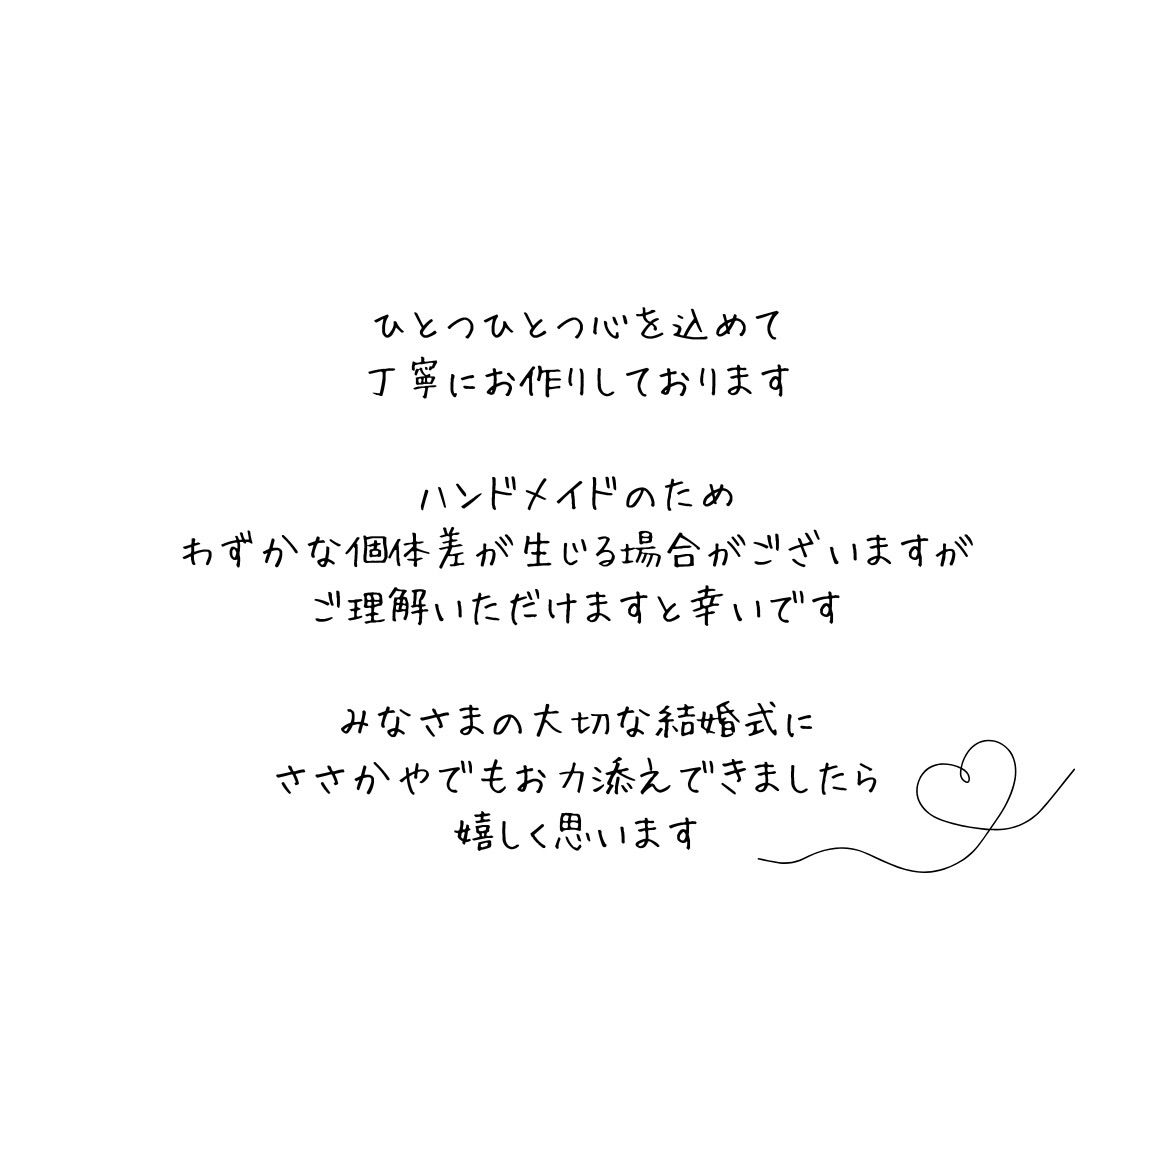 ひとつひとつ心を込めて
丁寧にお作りしております
ハンドメイドのため
わずかな個体差が生じる場合がございますが
ご理解いただけますと幸いです
みなさまの大切な結婚式に
ささかやでもお力添えできましたら
嬉しく思います